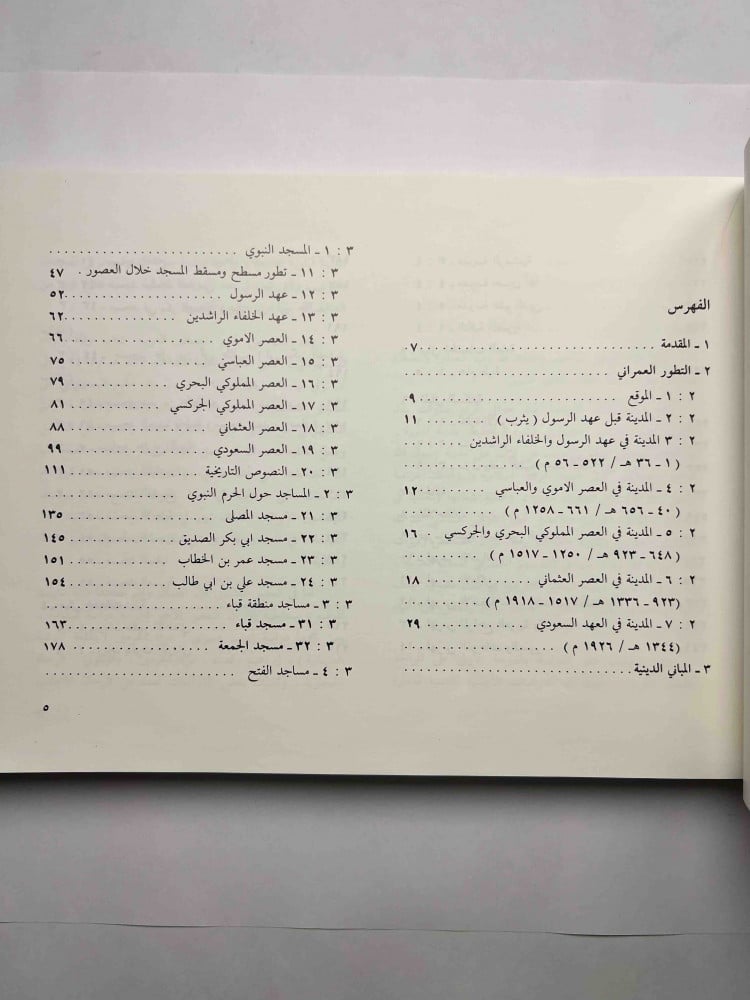 الفهرس
١ ـ المقدمة ................................ ٧
٢ ـ التطور العمراني ................................
٢ : ١ ـ الموقع ................................ ٩
٢ : ٢ ـ المدينة قبل عهد الرسول ( يثرب ) ........ ١١
٢ : ٣ المدينة في عهد الرسول والخلفاء الراشدين
( ١ ـ ٣٦ هـ / ٥٢٢ ـ ٥٦ م ) ................
٢ : ٤ ـ المدينة في العصر الاموي والعباسي .......... ١٢
( ٤٠ ـ ٦٥٦ هـ / ٦٦١ ـ ١٢٥٨ م ) ............
٢ : ٥ ـ المدينة في العصر المملوكي البحري والجركسي . ١٦
( ٦٤٨ ـ ٩٢٣ هـ / ١٢٥٠ ـ ١٥١٧ م ) ..........
٢ : ٦ ـ المدينة في العصر العثماني ............ ١٨
( ٩٢٣ ـ ١٣٣٦ هـ / ١٥١٧ ـ ١٩١٨ م ) ..........
٢ : ٧ ـ المدينة في العهد السعودي ............ ٢٩
( ١٣٤٤ هـ / ١٩٢٦ م ) ....................
٣ ـ المباني الدينية ................................
٣ : ١ ـ المسجد النبوي ................................
٣ : ١١ ـ تطور مسطح ومسقط المسجد خلال العصور . ٤٧
٣ : ١٢ ـ عهد الرسول .................... ٥٢
٣ : ١٣ ـ عهد الخلفاء الراشدين ................ ٦٢
٣ : ١٤ ـ العصر الاموي .................... ٦٦
٣ : ١٥ ـ العصر العباسي .................... ٧٥
٣ : ١٦ ـ العصر المملوكي البحري ............ ٧٩
٣ : ١٧ ـ العصر المملوكي الجركسي ............ ٨١
٣ : ١٨ ـ العصر العثماني .................... ٨٨
٣ : ١٩ ـ العصر السعودي .................... ٩٩
٣ : ٢٠ ـ النصوص التاريخية ................ ١١١
٣ : ٢ ـ المساجد حول الحرم النبوي ................
٣ : ٢١ ـ مسجد المصلى .................... ١٣٥
٣ : ٢٢ ـ مسجد ابي بكر الصديق ............ ١٤٥
٣ : ٢٣ ـ مسجد عمر بن الخطاب ............ ١٥١
٣ : ٢٤ ـ مسجد علي بن ابي طالب ............ ١٥٤
٣ : ٣ ـ مساجد منطقة قباء ....................
٣ : ٣١ ـ مسجد قباء .................... ١٦٣
٣ : ٣٢ ـ مسجد الجمعة .................... ١٧٨
٣ : ٤ ـ مساجد الفتح ........................
٥